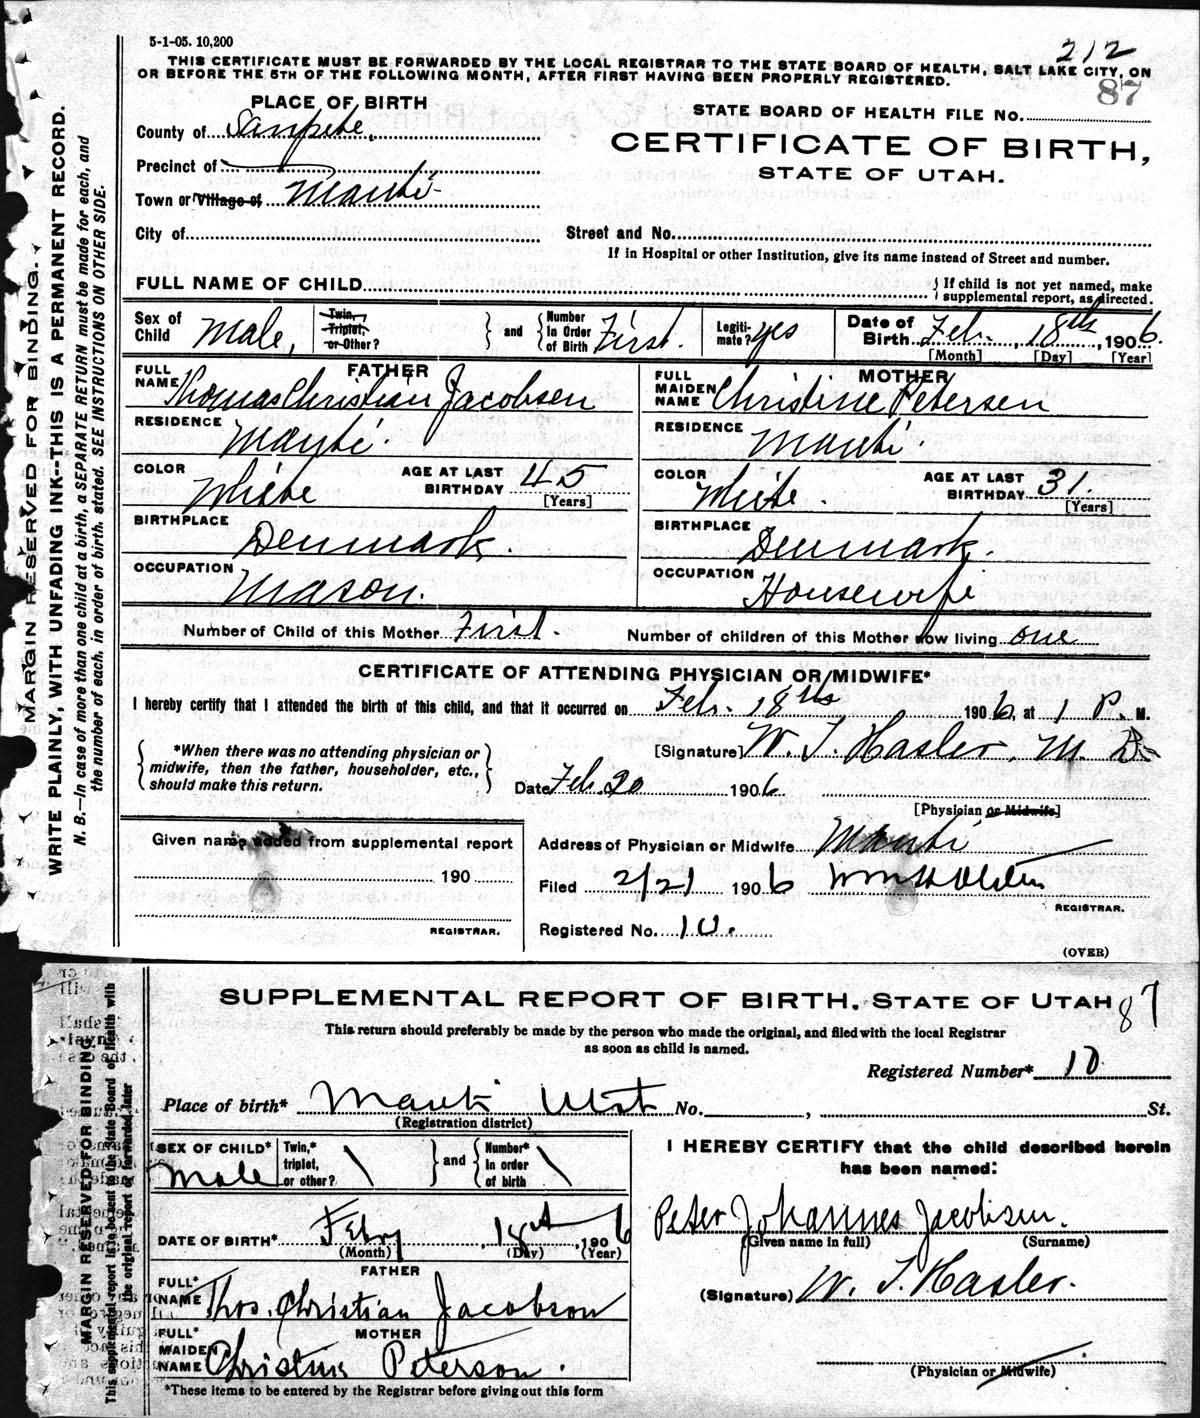 5-1-05. 10,200
212
THIS CERTIFICATE MUST BE FORWARDED BY THE LOCAL REGISTRAR TO THE STATE BOARD OF HEALTH, SALT LAKE CITY, ON
OR BEFORE THE 5TH OF THE FOLLOWING MONTH, AFTER FIRST HAVING BEEN PROPERLY REGISTERED.
87
PLACE OF BIRTH
STATE BOARD OF HEALTH FILE NO.
County of Sanpete,
CERTIFICATE OF BIRTH,
STATE OF UTAH.
Precinct of
Town or Village of Manti
City of
Street and No.
If in Hospital or other Institution, give its name instead of Street and number.
FULL NAME OF CHILD
{ If child is not yet named, make
supplemental report, as directed.
Sex of Child Male,
Twin, Triplet, or Other? } and { Number In Order of Birth First.
Legiti-mate? yes
Date of Birth Feb. 18th, 1906.
[Month] [Day] [Year]
FATHER
MOTHER
FULL NAME Thomas Christian Jacobsen
FULL MAIDEN NAME Christine Petersen
RESIDENCE Manti.
RESIDENCE Manti.
COLOR White AGE AT LAST BIRTHDAY 45 [Years]
COLOR White. AGE AT LAST BIRTHDAY 31. [Years]
BIRTHPLACE Denmark.
BIRTHPLACE Denmark.
OCCUPATION Mason.
OCCUPATION Housewife
Number of Child of this Mother First. Number of children of this Mother now living one
CERTIFICATE OF ATTENDING PHYSICIAN OR MIDWIFE*
I hereby certify that I attended the birth of this child, and that it occurred on Feb. 18th 1906, at 1 P. M.
{ *When there was no attending physician or
midwife, then the father, householder, etc.,
should make this return. }
[Signature] W. T. Hasler, M. D.
Date Feb. 20 1906
[Physician or Midwife]
Given name added from supplemental report
190
REGISTRAR.
Address of Physician or Midwife Manti
Filed 2/21 1906
REGISTRAR.
Registered No. 10.
(OVER)
MARGIN RESERVED FOR BINDING.
WRITE PLAINLY, WITH UNFADING INK--THIS IS A PERMANENT RECORD.
N. B.—In case of more than one child at a birth, a SEPARATE RETURN must be made for each, and
the number of each, in order of birth, stated. SEE INSTRUCTIONS ON OTHER SIDE.
SUPPLEMENTAL REPORT OF BIRTH. STATE OF UTAH
87
This return should preferably be made by the person who made the original, and filed with the local Registrar
as soon as child is named.
Registered Number* 10
Place of birth* Manti Utah No. , St.
(Registration district)
SEX OF CHILD* Male
Twin,* triplet, or other? } and { Number* In order of birth
DATE OF BIRTH* Feby 18th, 1906
(Month) (Day) (Year)
FATHER
FULL* NAME Thos. Christian Jacobson
MOTHER
FULL* MAIDEN NAME Christine Peterson.
*These items to be entered by the Registrar before giving out this form
I HEREBY CERTIFY that the child described herein
has been named:
Peter Johannes Jacobsen.
(Given name in full) (Surname)
(Signature) W. T. Hasler.
(Physician or Midwife)
MARGIN RESERVED FOR BINDING
This supplemental report is to be sent to the State Board of Health with
the original report or forwarded later